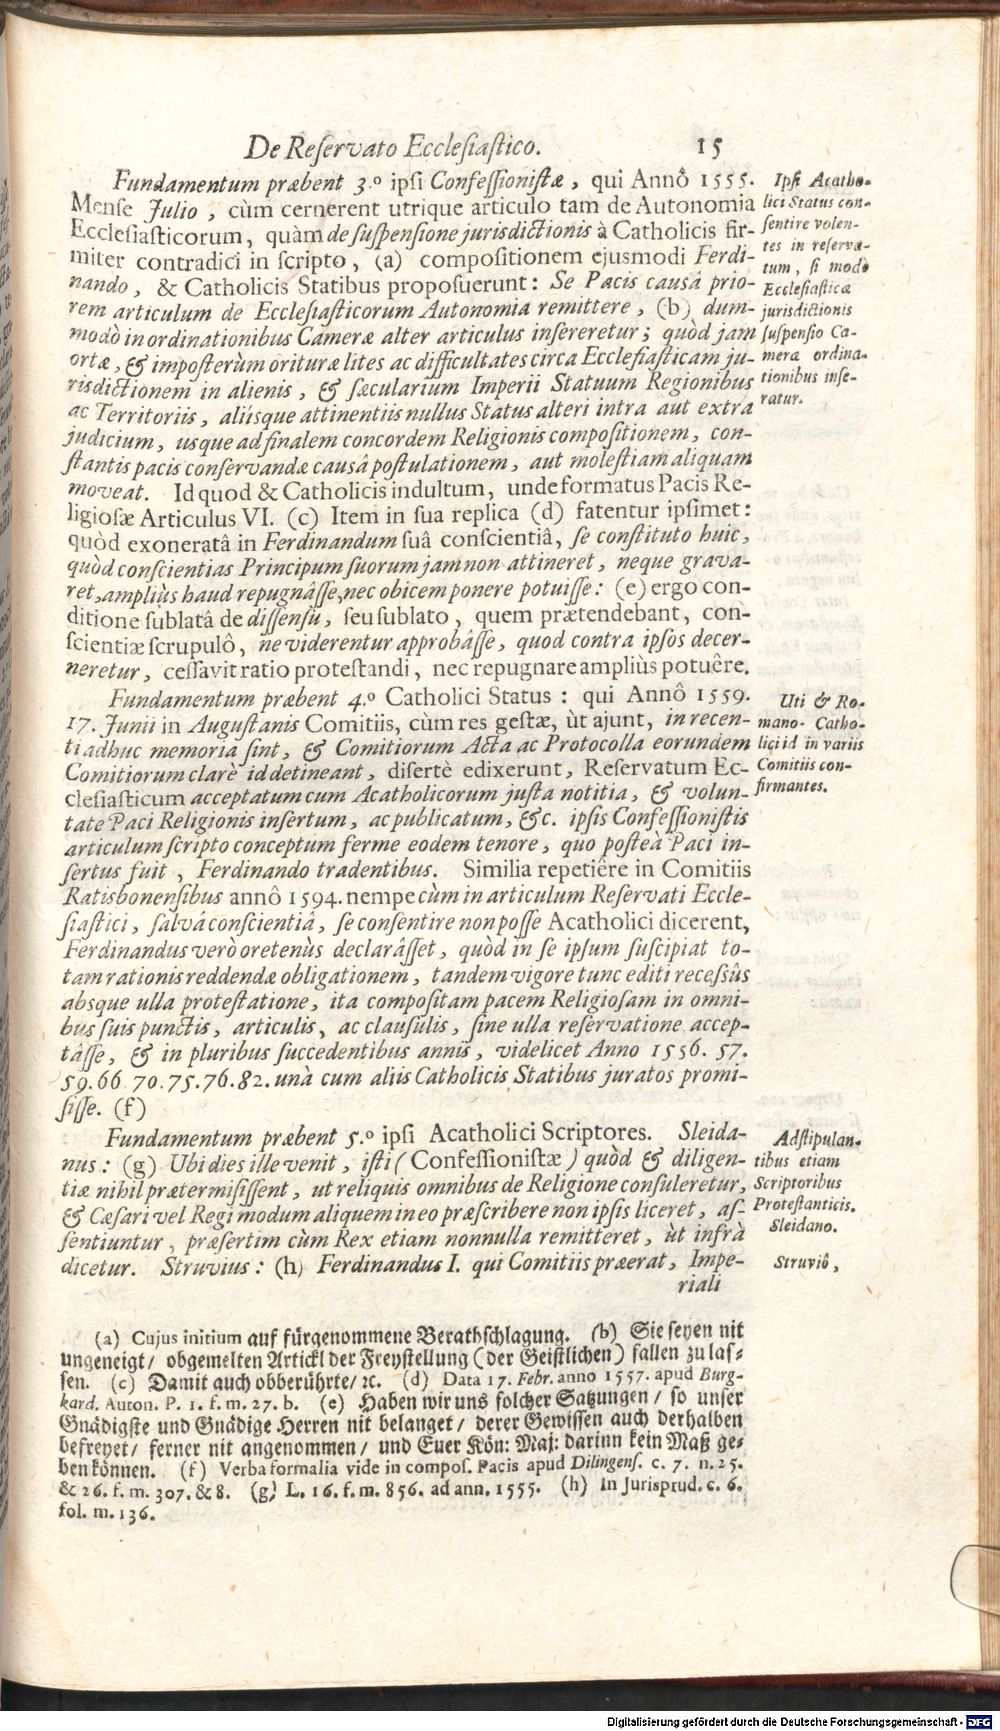 De Reſervato Eccleſiaſtico. 15
Fundamentum præbent 3.º ipſi Confeſſioniſtæ, qui Annô 1555.
Menſe Julio, cùm cernerent utrique articulo tam de Autonomia
Eccleſiaſticorum, quàm de ſuſpenſione jurisdictionis à Catholicis fir-
miter contradici in ſcripto, (a) compoſitionem ejusmodi Ferdi-
nando, & Catholicis Statibus propoſuerunt: Se Pacis causâ prio-
rem articulum de Eccleſiaſticorum Autonomia remittere, (b) dum-
modò in ordinationibus Cameræ alter articulus inſereretur; quòd jam
ortæ, & impoſterùm orituræ lites ac difficultates circa Eccleſiaſticam ju-
risdictionem in alienis, & ſæcularium Imperii Statuum Regionibus
ac Territoriis, aliisque attinentiis nullus Status alteri intra aut extra
judicium, usque ad finalem concordem Religionis compoſitionem, con-
ſtantis pacis conſervandæ causâ poſtulationem, aut moleſtiam aliquam
moveat. Id quod & Catholicis indultum, unde formatus Pacis Re-
ligioſæ Articulus VI. (c) Item in ſua replica (d) fatentur ipſimet:
quòd exoneratâ in Ferdinandum ſuâ conſcientiâ, ſe conſtituto huic,
quòd conſcientias Principum ſuorum jam non attineret, neque grava-
ret, ampliùs haud repugnâſſe, nec obicem ponere potuiſſe: (e) ergo con-
ditione ſublatâ de diſſensu, ſeu ſublato, quem prætendebant, con-
ſcientiæ ſcrupulô, ne viderentur approbâſſe, quod contra ipſos decer-
neretur, ceſſavit ratio proteſtandi, nec repugnare ampliùs potuêre.
Fundamentum præbent 4.º Catholici Status: qui Annô 1559.
17. Junii in Auguſtanis Comitiis, cùm res geſtæ, ùt ajunt, in recen-
ti adhuc memoria ſint, & Comitiorum Acta ac Protocolla eorundem
Comitiorum clarè id detineant, diſertè edixerunt, Reſervatum Ec-
cleſiaſticum acceptatum cum Acatholicorum juſta notitia, & volun-
tate Paci Religionis inſertum, ac publicatum, &c. ipſis Confeſſioniſtis
articulum ſcripto conceptum ferme eodem tenore, quo poſteà Paci in-
ſertus fuit, Ferdinando tradentibus. Similia repetiêre in Comitiis
Ratisbonenſibus annô 1594. nempe cùm in articulum Reſervati Eccle-
ſiaſtici, ſalvâ conſcientiâ, ſe conſentire non poſſe Acatholici dicerent,
Ferdinandus verò oretenùs declarâſſet, quòd in ſe ipſum ſuſcipiat to-
tam rationis reddendæ obligationem, tandem vigore tunc editi receſsûs
absque ulla proteſtatione, ita compoſitam pacem Religioſam in omni-
bus ſuis punctis, articulis, ac clauſulis, ſine ulla reſervatione accep-
tâſſe, & in pluribus ſuccedentibus annis, videlicet Anno 1556. 57.
59. 66. 70. 75. 76. 82. unà cum aliis Catholicis Statibus juratos promi-
ſiſſe. (f)
Fundamentum præbent 5.º ipſi Acatholici Scriptores. Sleida-
nus: (g) Ubi dies ille venit, iſti (Confeſſioniſtæ) quòd & diligen-
tiæ nihil prætermiſiſſent, ut reliquis omnibus de Religione conſuleretur,
& Cæſari vel Regi modum aliquem in eo præſcribere non ipſis liceret, aſ-
ſentiuntur, præſertim cùm Rex etiam nonnulla remitteret, ùt infrà
dicetur. Struvius: (h) Ferdinandus I. qui Comitiis præerat, Impe-
riali
Ipſi Acatho-
lici Status con-
ſentire volen-
tes in reſerva-
tum, ſi modò
Eccleſiaſticæ
jurisdictionis
ſuſpenſio Ca-
meræ ordina-
tionibus inſe-
ratur.
Uti & Ro-
mano- Catho-
lici id in variis
Comitiis con-
firmantes.
Adſtipulan-
tibus etiam
Scriptoribus
Proteſtanticis.
Sleidano.
Struviô,
(a) Cujus initium auf fürgenommene Berathſchlagung. (b) Sie ſeyen nit
ungeneigt/ obgemelten Artickl der Freyſtellung (der Geiſtlichen) fallen zu laſ-
ſen. (c) Damit auch obberührte/ ꝛc. (d) Data 17. Febr. anno 1557. apud Burg-
kard. Auton. P. 1. f. m. 27. b. (e) Haben wir uns ſolcher Satzungen/ ſo unſer
Gnädigſte und Gnädige Herren nit belanget/ derer Gewiſſen auch derhalben
befreyet/ ferner nit angenommen/ und Euer Kön: Maj: darinn kein Maß ge-
ben können. (f) Verba formalia vide in compoſ. Pacis apud Dilingenſ. c. 7. n. 25.
& 26. f. m. 307. & 8. (g) L. 16. f. m. 856. ad ann. 1555. (h) In Jurisprud. c. 6.
fol. m. 136.
Digitalisierung gefördert durch die Deutsche Forschungsgemeinschaft - DFG